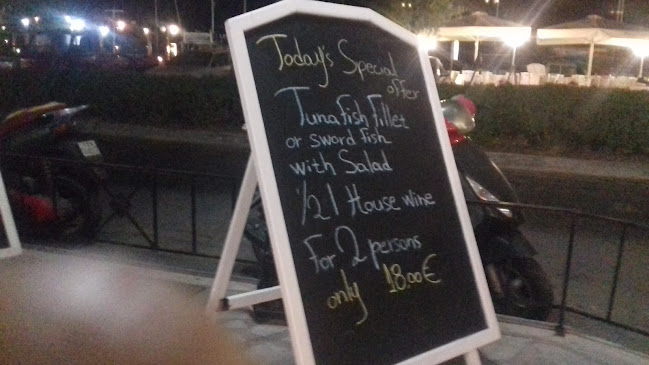 Today's Special
offer
Tuna fish fillet
or sword fish
with Salad
1/2 l House wine
For 2 persons
only 18.00€